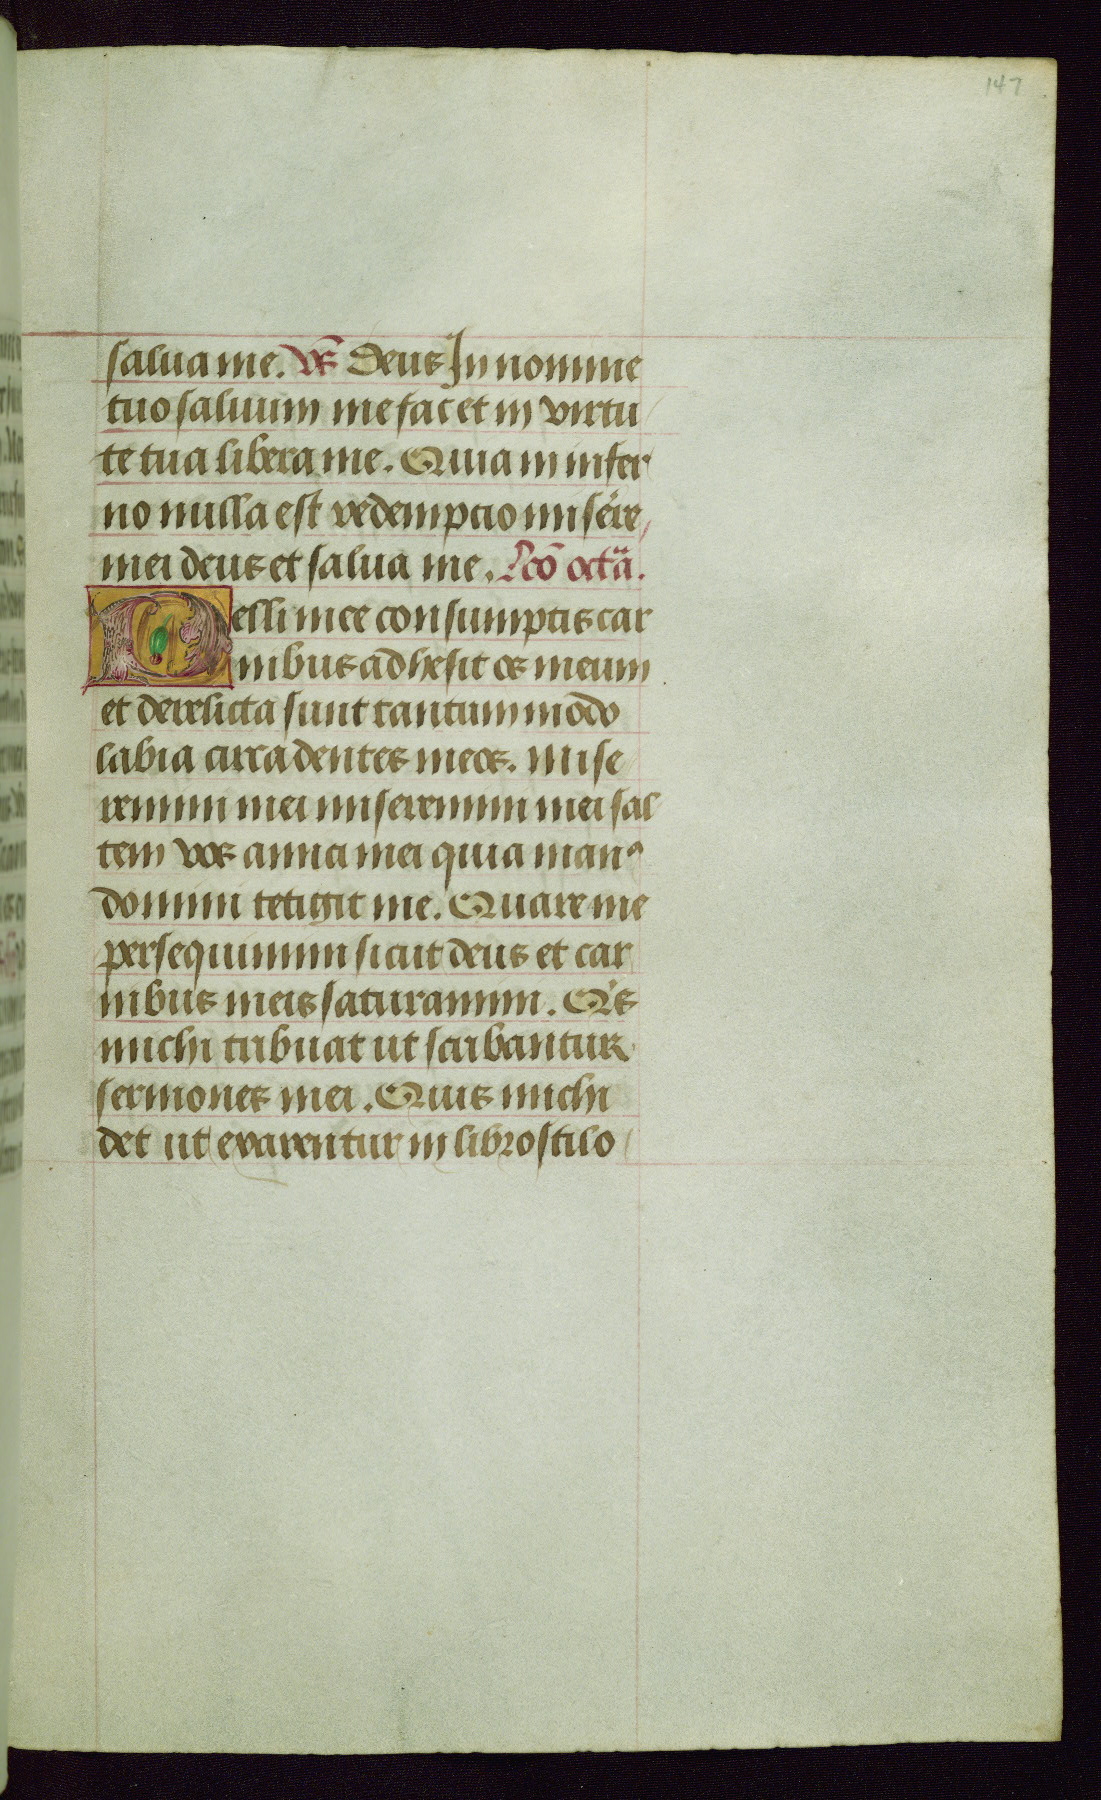 147
salua me. V̅s Deus In nomine
tuo saluum me fac et in virtu
te tua libera me. Quia in infer
no nulla est redempcio misere,
mei deus et salua me. Lc̅o octa̅.
Pelli mee consumptis car
nibus adhesit os meum
et derelicta sunt tantummodo
labia circa dentes meos. Mise
remini mei miseremini mei sal
tem vos amici mei quia manꝰ
domini tetigit me. Quare me
persequimini sicut deus et car
nibus meis saturamini. Qis
michi tribuat ut scribantur
sermones mei. Quis michi
det ut exarentur in libro stilo